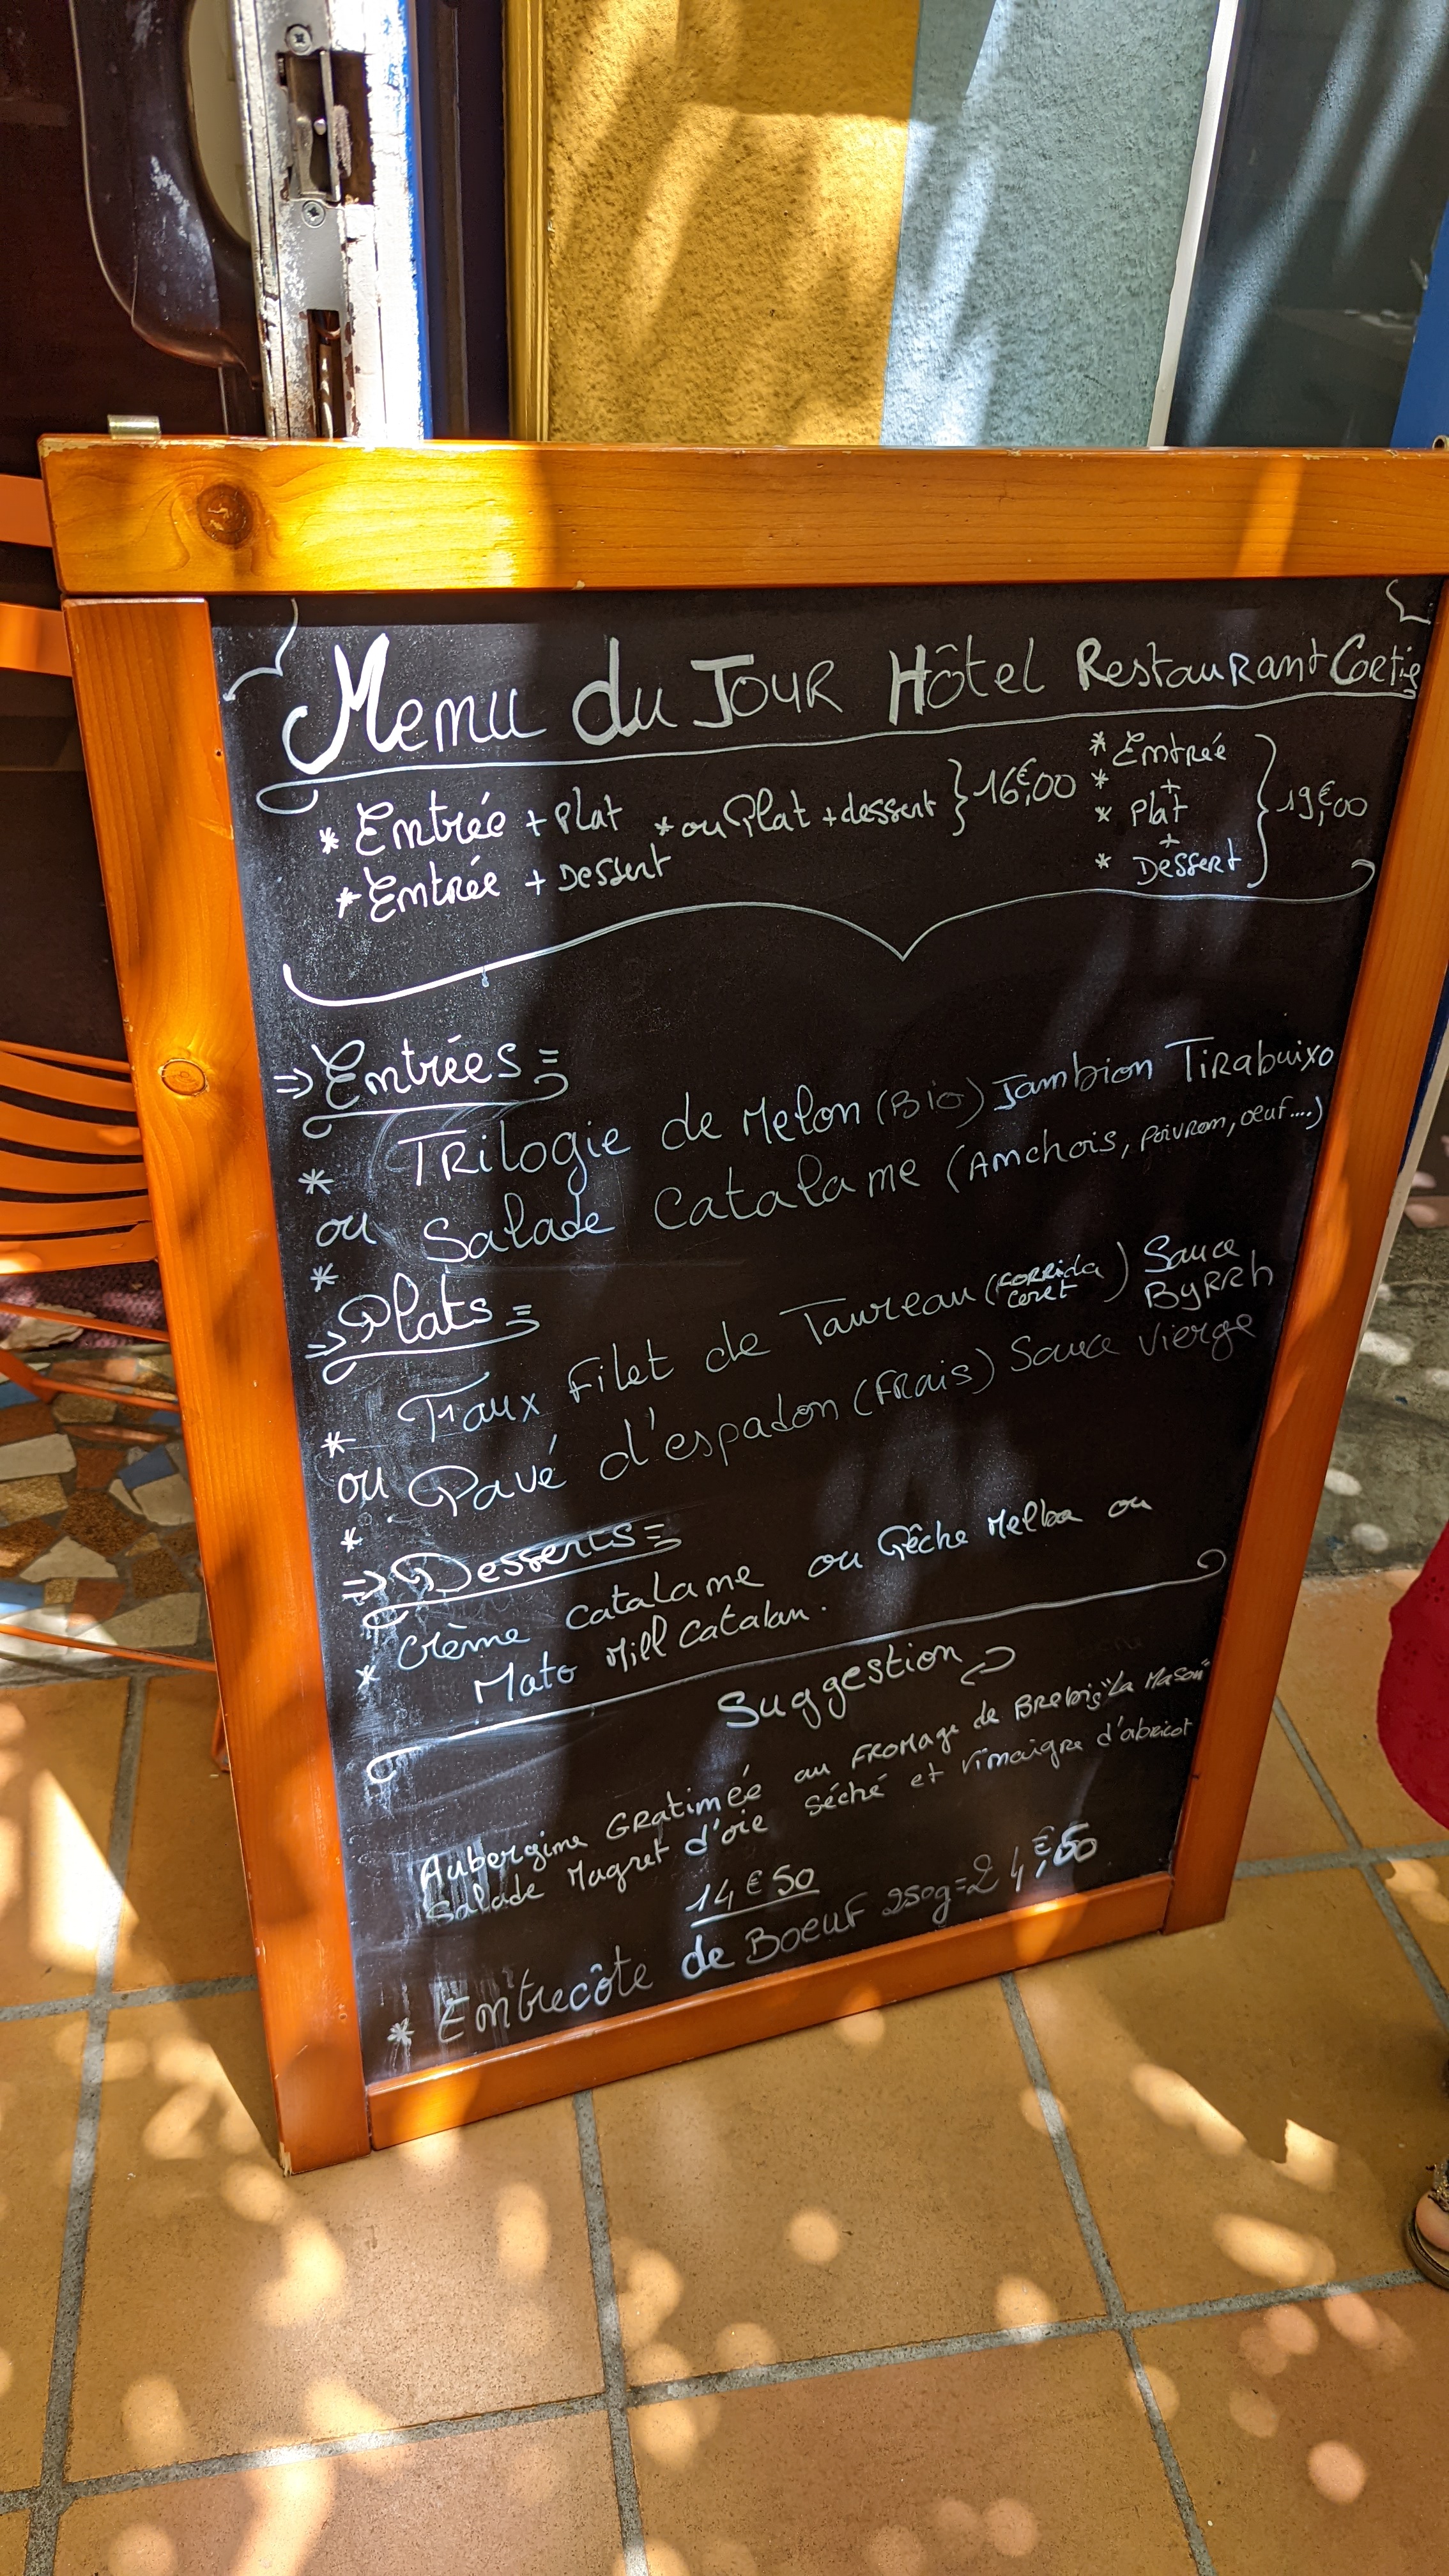 Menu du Jour Hôtel Restaurant Cortie
* Entrée + Plat * ou Plat + dessert } 16€,00
* Entrée + Dessert
* Entrée
* +
* Plat
+
* Dessert
} 19€,00
⇒ Entrées =
* Trilogie de Melon (Bio) Jambion Tirabuixo
ou Salade Catalane (Anchois, poivron, œuf....)
*
⇒ Plats =
* Faux Filet de Taureau (Corrida Ceret) Sauce Byrrh
ou Pavé d'espadon (Frais) Sauce Vierge
*
⇒ Desserts =
* Crème Catalane ou Pêche Melba ou
Mato Mill Catalan.
Suggestion
Aubergine Gratinée au Fromage de Brebis "La Mason"
Salade Magret d'oie séché et vinaigre d'abricot
14€50
* Entrecôte de Boeuf 250g = 24€,50